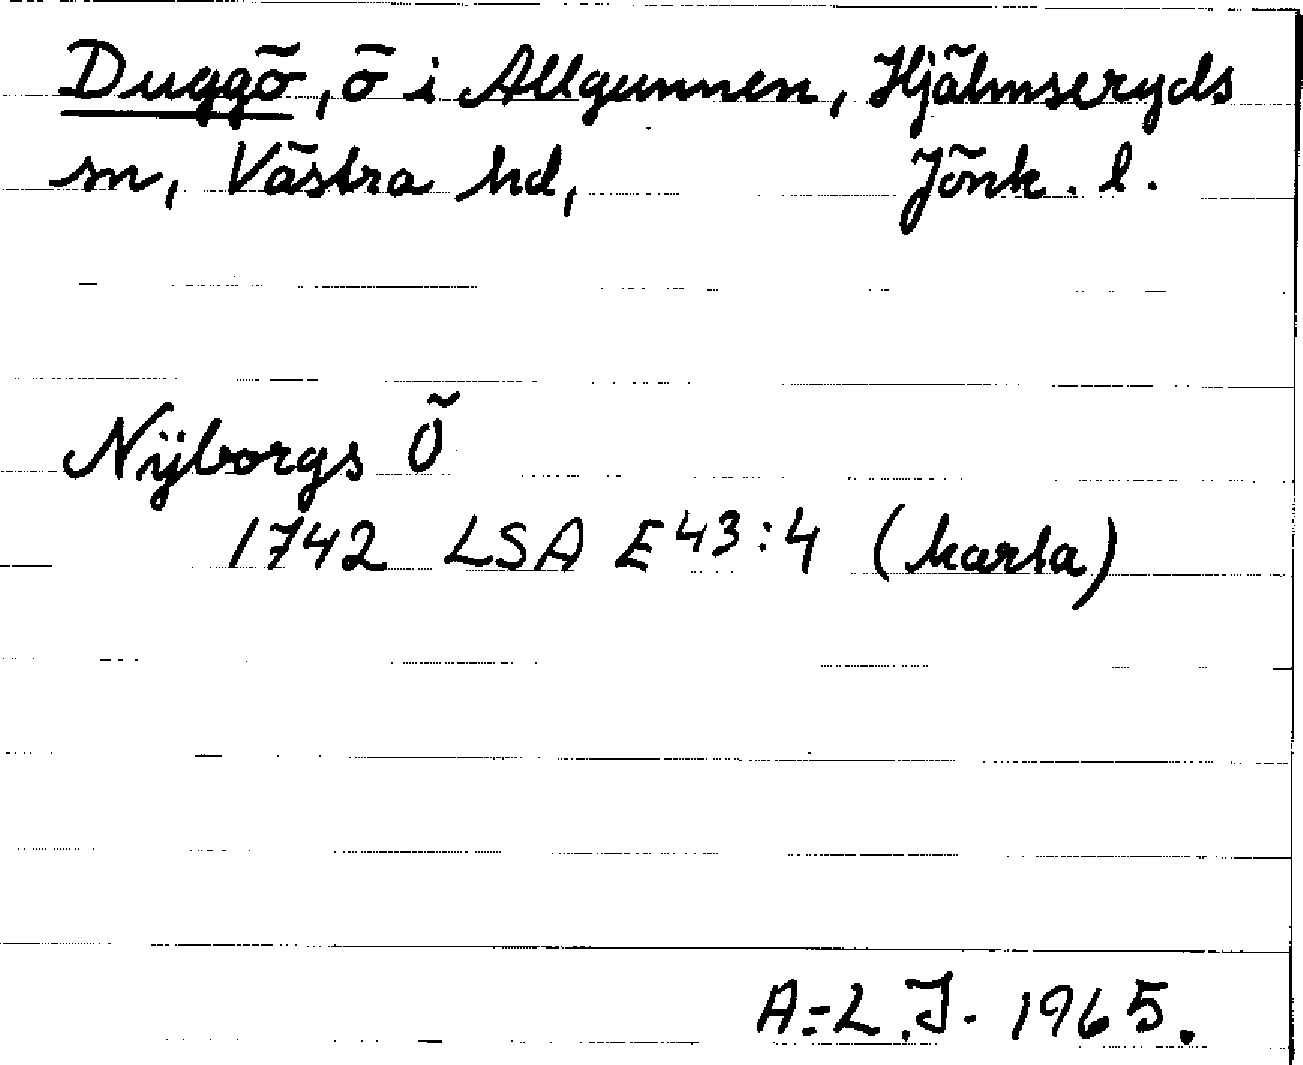 Duggö, ö i Allgunnen, Hjälmseryds
sn, Västra hd, Jönk. l.
Nÿborgs Ö
1742 LSA E43:4 (karta)
A-L.J. 1965.